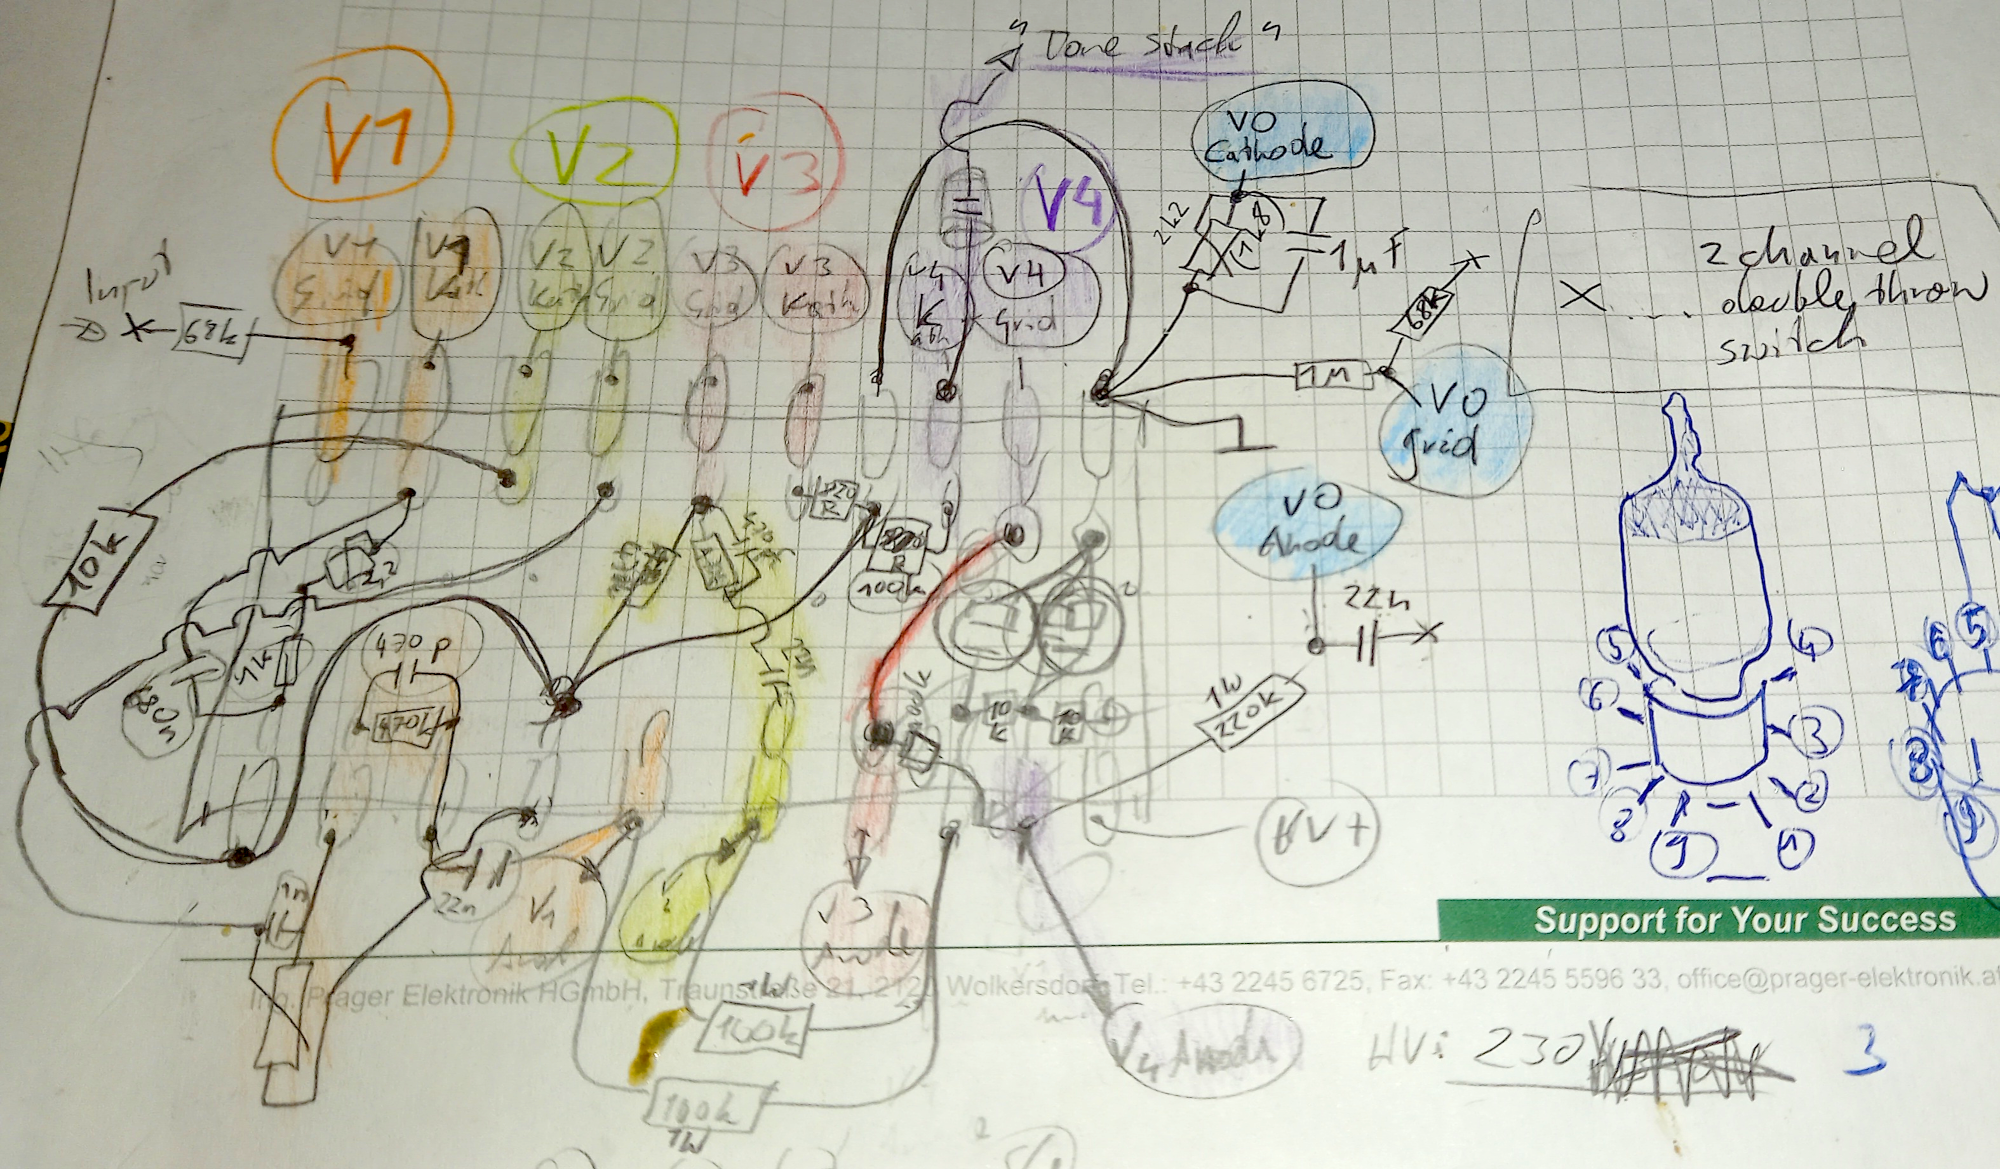 "Tone stack"
V1
V2
V3
V4
VO
Cathode
V1
Grid
V1
Kat
V2
Kath
V2
Grid
V3
Grid
V3
Kath
V4
K
ath
V4
Grid
Input
68k
2k2
1k8
1µF
68k
1M
VO
grid
X.... 2 channel
double throw
switch
VO
Anode
22n
10k
2,2
1k
680n
470p
470k
220
R
R
100k
22n
100k
10
k
10
k
1W
220k
HV+
1n
22n
V1
Anod
V3
Anode
V4 Anode
1W
100k
100k
1W
5
4
6
3
7
2
8
9
1
6
5
7
8
9
Support for Your Success
Ing. Prager Elektronik HGmbH, Traunstraße 21, 2120 Wolkersdorf, Tel.: +43 2245 6725, Fax: +43 2245 5596 33, office@prager-elektronik.at
HV: 230V
3